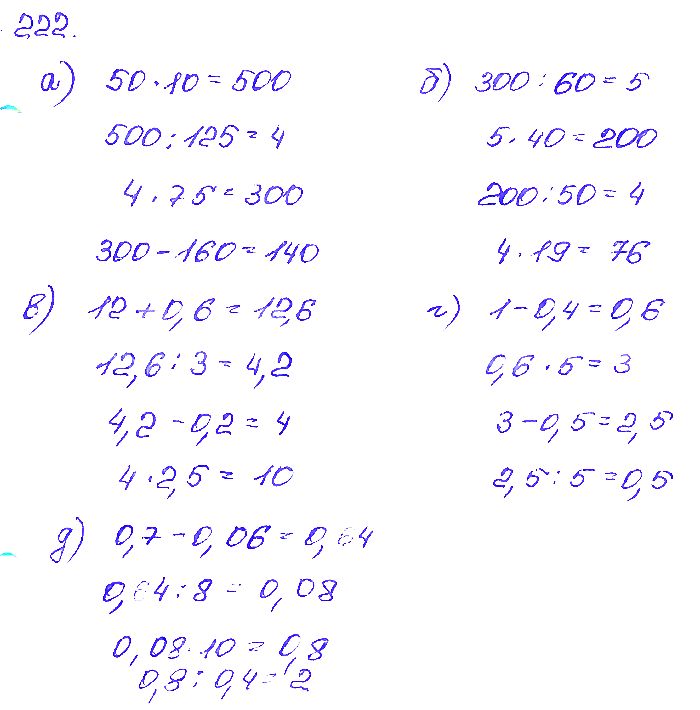 222.
а) 50 · 10 = 500
500 : 125 = 4
4 · 75 = 300
300 - 160 = 140
б) 300 : 60 = 5
5 · 40 = 200
200 : 50 = 4
4 · 19 = 76
в) 12 + 0,6 = 12,6
12,6 : 3 = 4,2
4,2 - 0,2 = 4
4 · 2,5 = 10
г) 1 - 0,4 = 0,6
0,6 · 5 = 3
3 - 0,5 = 2,5
2,5 : 5 = 0,5
д) 0,7 - 0,06 = 0,64
0,64 : 8 = 0,08
0,08 · 10 = 0,8
0,8 : 0,4 = 2